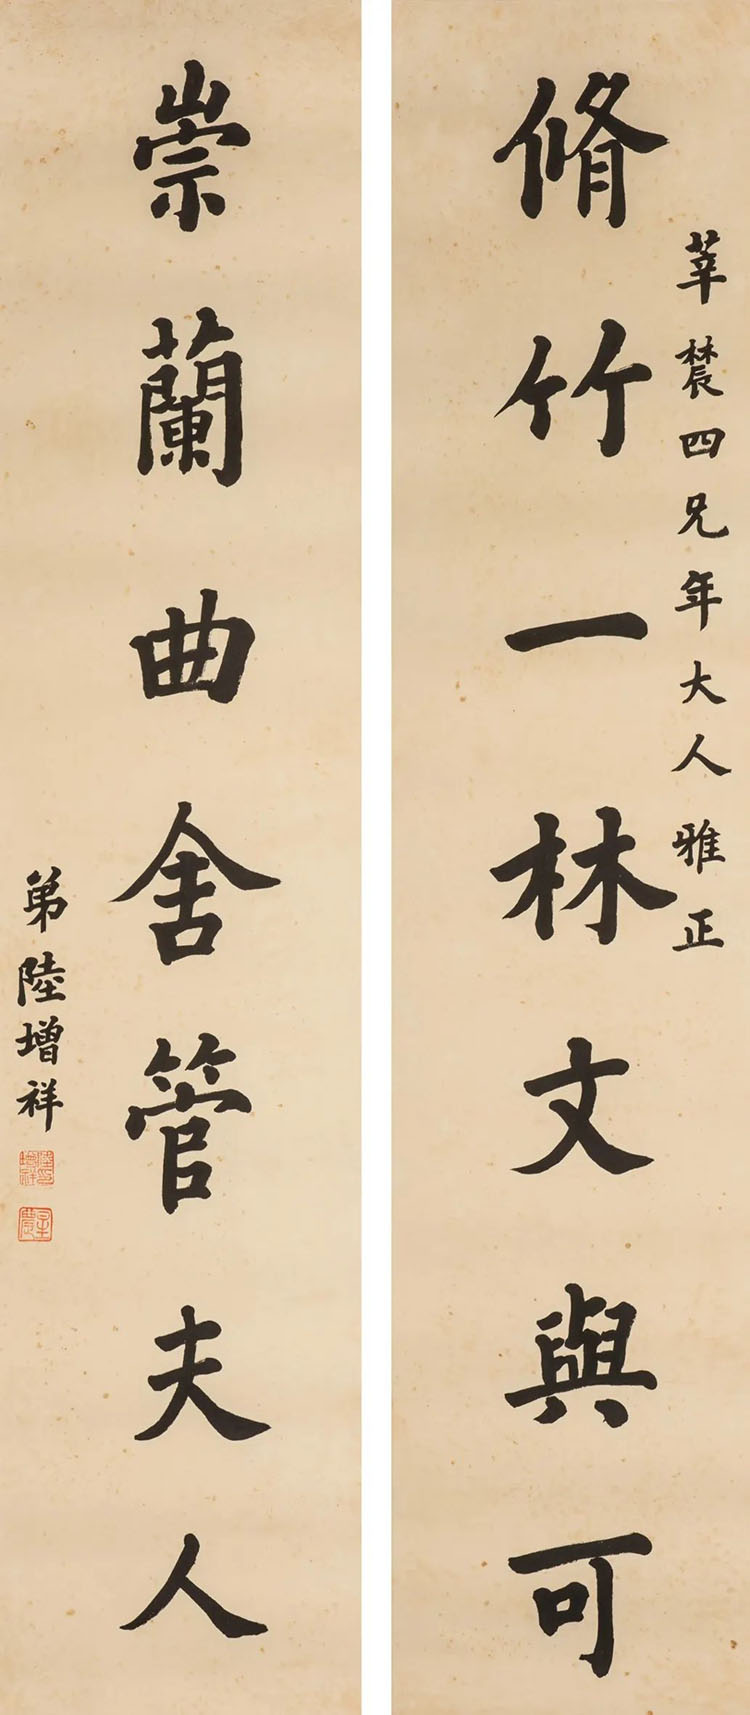 莘辳四兄年大人雅正
脩竹一林文與可
崇蘭曲舍管夫人
弟陸增祥
陸印增祥
星農